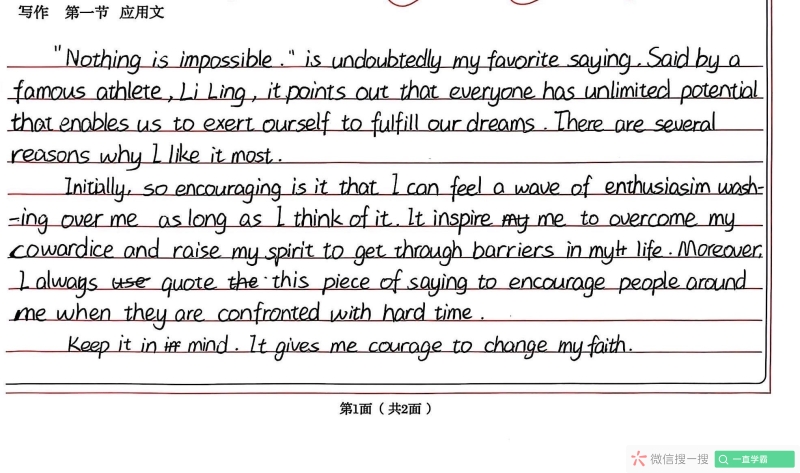 写作 第一节 应用文
"Nothing is impossible." is undoubtedly my favorite saying. Said by a
famous athlete, Li Ling, it points out that everyone has unlimited potential
that enables us to exert ourself to fulfill our dreams. There are several
reasons why I like it most.
Initially, so encouraging is it that I can feel a wave of enthusiasim wash-
-ing over me as long as I think of it. It inspire my me to overcome my
cowardice and raise my spirit to get through barriers in my life. Moreover,
I always use quote the this piece of saying to encourage people around
me when they are confronted with hard time.
Keep it in in mind. It gives me courage to change my faith.
第1面（共2面）
微信搜一搜 一直学霸